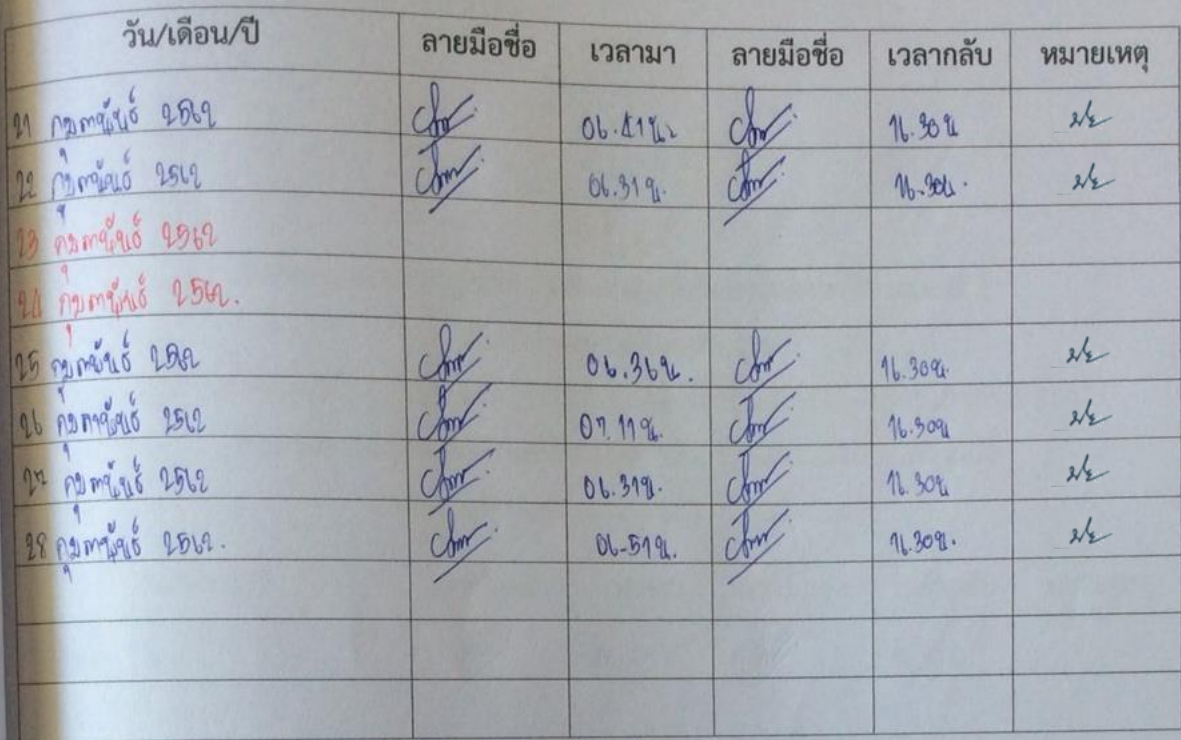 วัน/เดือน/ปี ลายมือชื่อ เวลามา ลายมือชื่อ เวลากลับ หมายเหตุ
21 กุมภาพันธ์ 2562 06.41น. 16.30น
22 กุมภาพันธ์ 2562 06.31น. 16.30น.
23 กุมภาพันธ์ 2562
24 กุมภาพันธ์ 2562.
25 กุมภาพันธ์ 2562 06.36น. 16.30น.
26 กุมภาพันธ์ 2562 07.11น. 16.30น
27 กุมภาพันธ์ 2562 06.31น. 16.30น
28 กุมภาพันธ์ 2562. 06-51น. 16.30น.